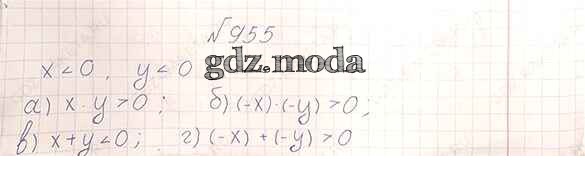 №955
x < 0, y < 0 gdz.moda
а) x · y > 0; б) (-x) · (-y) > 0;
в) x + y < 0; г) (-x) + (-y) > 0